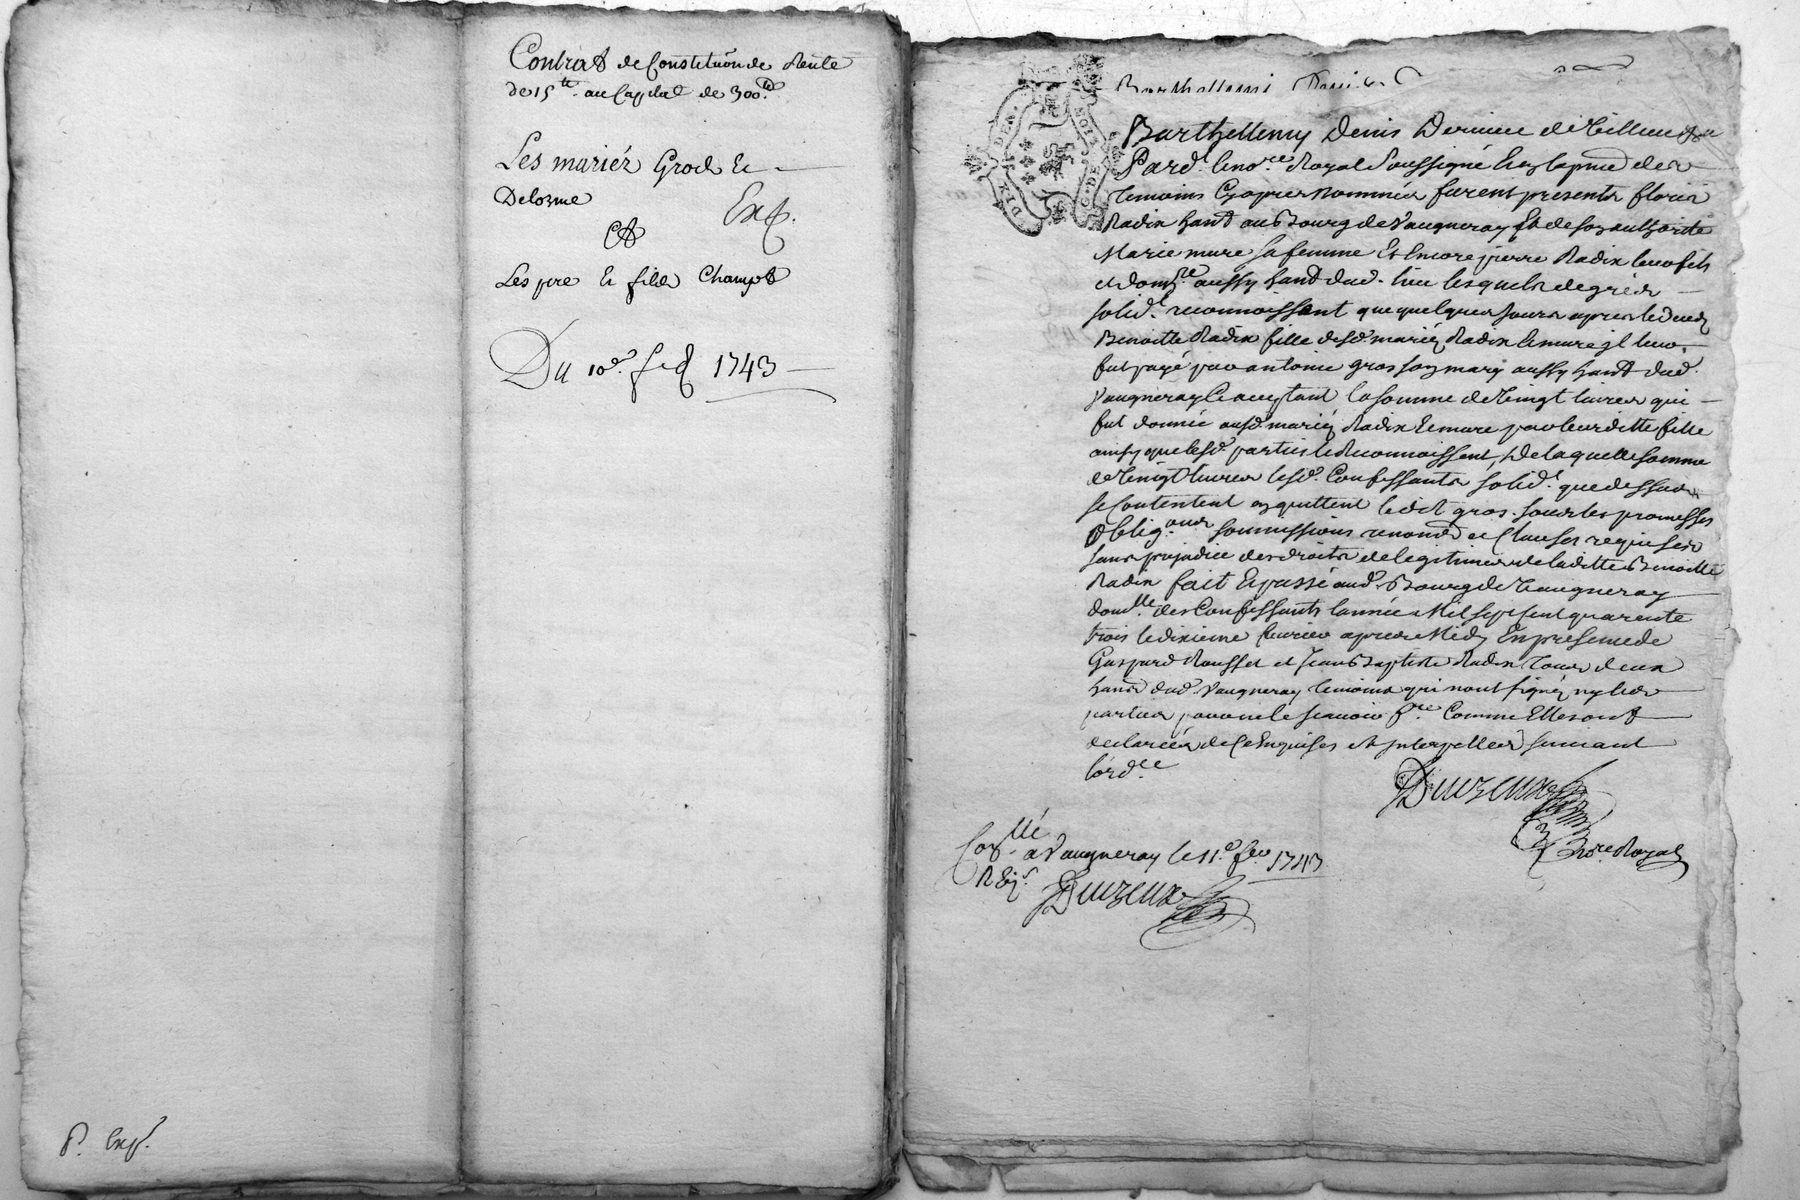 Contrat de Constitution de Rente
de 15ᵗᵗ au Capital de 300ᵗᵗ
Les mariéz Grod &
Delorme
Exp.
Et
Les pere & fils Champt
Du 10ᵉ. fev 1743
P. Exp.
Barthellemi Denis
Barthellemy Denis Derniere de
Pard. le noʳᵉ Royal Soussigné & en la pnce des
temoins Cy apres nommés furent presents
Radix habt au Bourg de Vaugneray & de son authorité
Marie mure sa femme Et Encore pierre Radix leur fils
et domᵉ aussy habt dud. lieu lesquels de gré
solid. reconnoissent que quelques jours apres le deces
Benoitte Radix fille desd mariéz Radix & mure il leur
fut payé par antoine gros son mary aussy habt dud.
Vaugneray Ce acceptant la somme de Vingt livres qui
fut donnée ausd mariéz Radix & mure par leur ditte fille
ainsy que lesd. parties le Reconnoissent, De laquelle somme
de Vingt livres lesd. Confessants solid. que dessus
se Contentent en quittent ledit gros. sous les promesses
Obligᵒⁿˢ soumissions renonᵒⁿˢ et Clauses requises
sans prejudice des droits de legitimes de laditte Benoitte
Radix fait & passé aud. Bourg de Vaugneray
domᶫᵉ des Confessants l'année Mil sept Cent quarente
trois le dixieme fevrier apres Midy En presence de
Gaspard Rousset et Jean Baptiste Radix Tous deux
habts dud. Vaugneray temoins qui n'ont signéz ny les
parties pour ne le scavoir fʳᵉ Comme Elles ont
declarées de Ce Enquises et Interpellées suivant
l'ordᶜᵉ
Duvzeux
Noʳᵉ Royal
Conᵗˡˡᵉ a Vaugneray le 11.ᵉ fev 1743
Duvzeux